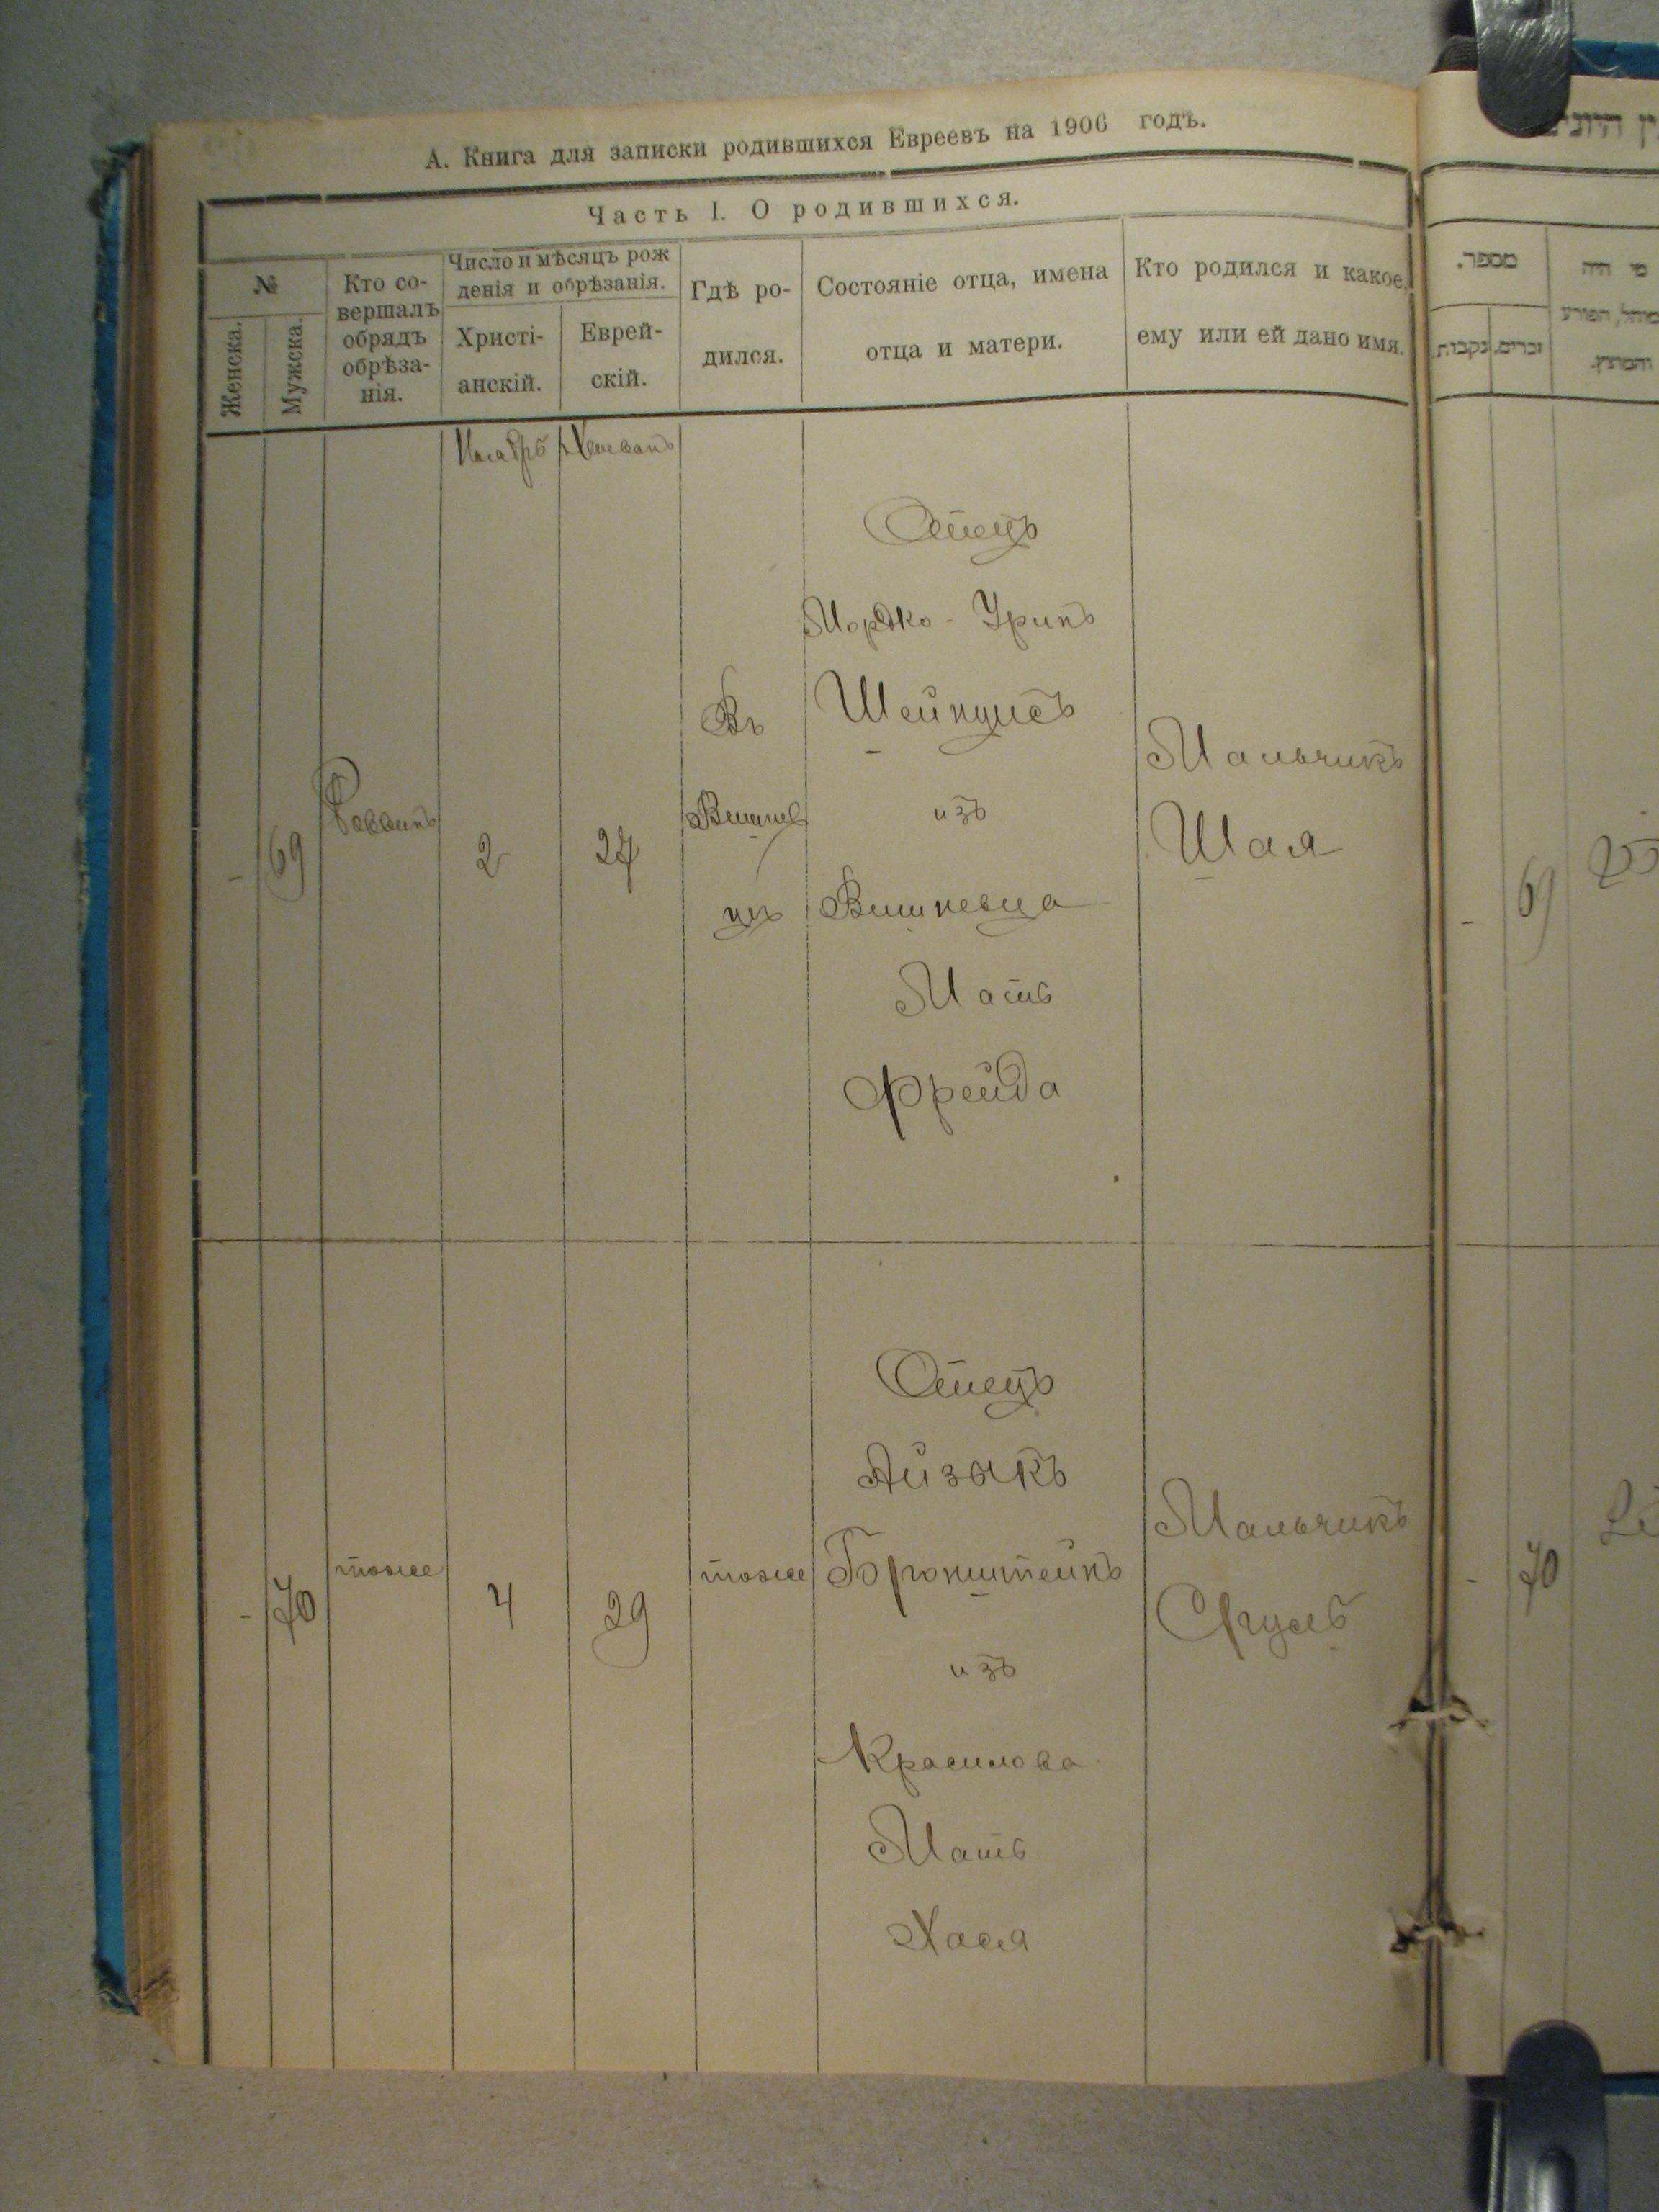 А. Книга для записки родившихся Евреевъ на 1906 годъ.
Часть I. О родившихся.
№
Женска.
Мужска.
Кто со-
вершалъ
обрядъ
обрѣза-
нія.
Число и мѣсяцъ рож
денія и обрѣзанія.
Христі-
анскій.
Еврей-
скій.
Гдѣ ро-
дился.
Состояніе отца, имена
отца и матери.
Кто родился и какое,
ему или ей дано имя.
מספר.
נקבות.
זכרים.
מי היה
Ноябрь
Хешванъ
-
69
Раввинъ
2
27
Въ
Вишнев
цѣ
Отецъ
Мордко - Уринъ
Шейнцисъ
изъ
Вишневца
Мать
Фрейда
Мальчикъ
Шая
-
69
-
70
тоже
4
29
тоже
Отецъ
Айзикъ
Бронштейнъ
изъ
Красилова
Мать
Хася
Мальчикъ
Сруль
-
70